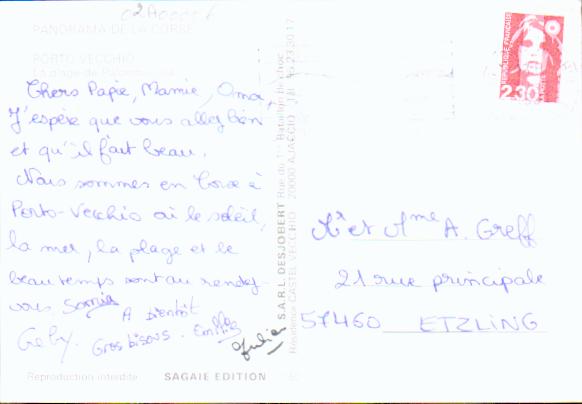 02A00006
PANORAMA DE LA CORSE
PORTO VECCHIO
La plage de
Chers Papie, Mamie, Oma,
J'espère que vous allez bien
et qu'il fait beau.
Nous sommes en Corse à
Porto-Vecchio où le soleil,
la mer, la plage et le
beau temps sont au rendez-
vous Sonia
A bientôt
Gros bisous. Emilie
Gaby.
Julien
Reproduction interdite SAGAIE EDITION
S.A.R.L. DESJOBERT Rue du 1er Bataillon de choc
Résidence CASTEL VECCHIO 20000 AJACCIO
REPUBLIQUE FRANÇAISE
2,30
Mr et Mme A. Greff
21 rue principale
57460 ETZLING